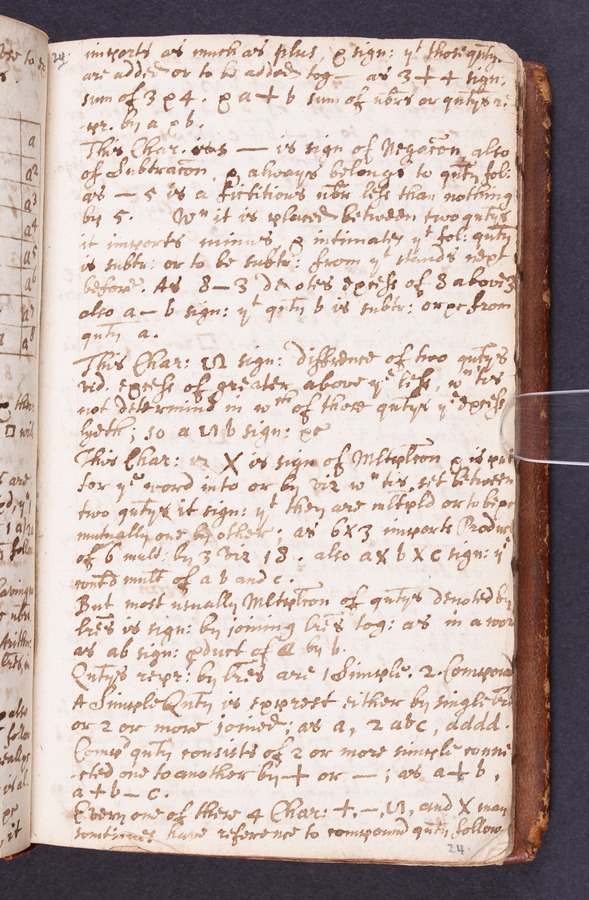 imports as much as plus, & sign: yt those qntys
are added or to be added tog— as 3+4 sign:
sum of 3 & 4. & a+b sum of nbrs or qntys re
-pr. by a & b.
This Char. — is sign of Negacōn, also
of Subtracōn, & always belongs to qnty fol:
as — 5 is a fictitious nbr less than nothing
by 5. Wn it is placed between two qntys
it imports minus, & intimates yt fol: qnty
is subtr: or to be subtr: from yt stands next
before. As 8—3 denotes excess of 8 above 3
also a—b sign: yt qnty b is subtr: or &c from
qnty a.
This Char: ᔕ sign: difference of two qntys
vid: excess of greater above ye less, wn tis
not determind in wch of these qntys ye excess
lyeth; so a ᔕ b sign: &c
This Char: X is sign of Mltiplcon & is put
for ye word into or by viz wn tis set between
two qntys it sign: yt they are mltpld or to be
mutually one by other; as 6X3 imports Produc
of 6 mult: by 3 viz 18. also aXbXc sign: ye
contd mult of a b and c.
But most usually Mltiplcon of qntys denoted by
lres is sign: by joining lres tog: as in a wor
as ab sign: pduct of a by b.
Qntys repr: by lres are 1 Simple. 2. Compou
A Simple Qnty is exprest either by single
or 2 or more joined; as a, 2abc, dddd.
Compd qnty consists of 2 or more simple conne
-cted one to another by + or —; as a+b,
a+b—c.
Every one of these 4 Char: +, —, ᔕ, and X may
somtimes have reference to compound qnty follow
24.